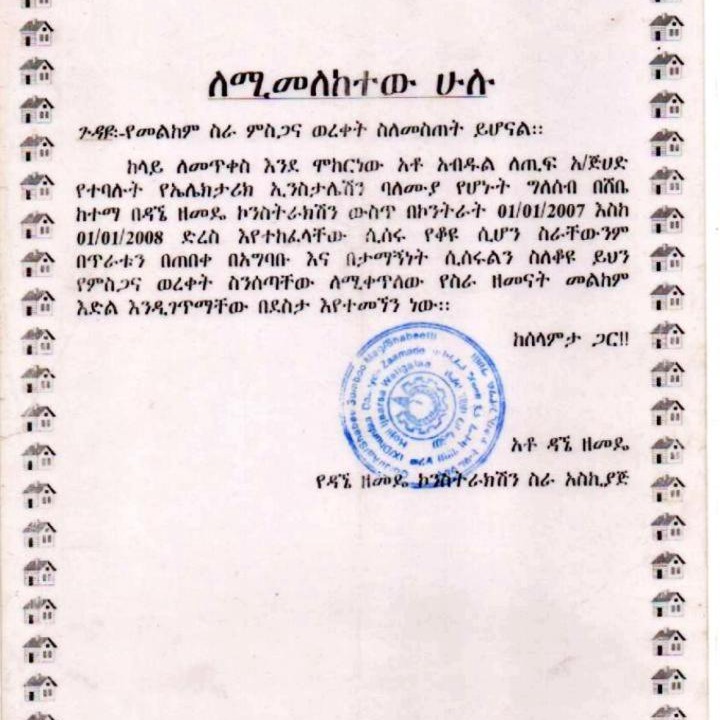 ለሚመለከተው ሁሉ
ጉዳዩ፡-የመልካም ስራ ምስጋና ወረቀት ስለመስጠት ይሆናል፡፡
ከላይ ለመጥቀስ እንደ ሞከርነው አቶ አብዱል ለጢፍ አ/ጅሀድ
የተባሉት የኤሌክታሪክ ኢንስታሌሽን ባለሙያ የሆኑት ግለሰብ በሸቤ
ከተማ በዳኜ ዘመዴ ኮንስትራክሽን ውስጥ በኮንትራት 01/01/2007 እስከ
01/01/2008 ድረስ እየተከፈላቸው ሲሰሩ የቆዩ ሲሆን ስራቸውንም
በጥራቱን በጠበቀ በአግባቡ እና በታማኝነት ሲሰሩልን ስለቆዩ ይህን
የምስጋና ወረቀት ስንሰጣቸው ለሚቀጥለው የስራ ዘመናት መልካም
እድል እንዲገጥማቸው በደስታ እየተመኘን ነው፡፡
ከሰላምታ ጋር!!
አቶ ዳኜ ዘመዴ
የዳኜ ዘመዴ ኮንስትራክሽን ስራ አስኪያጅ